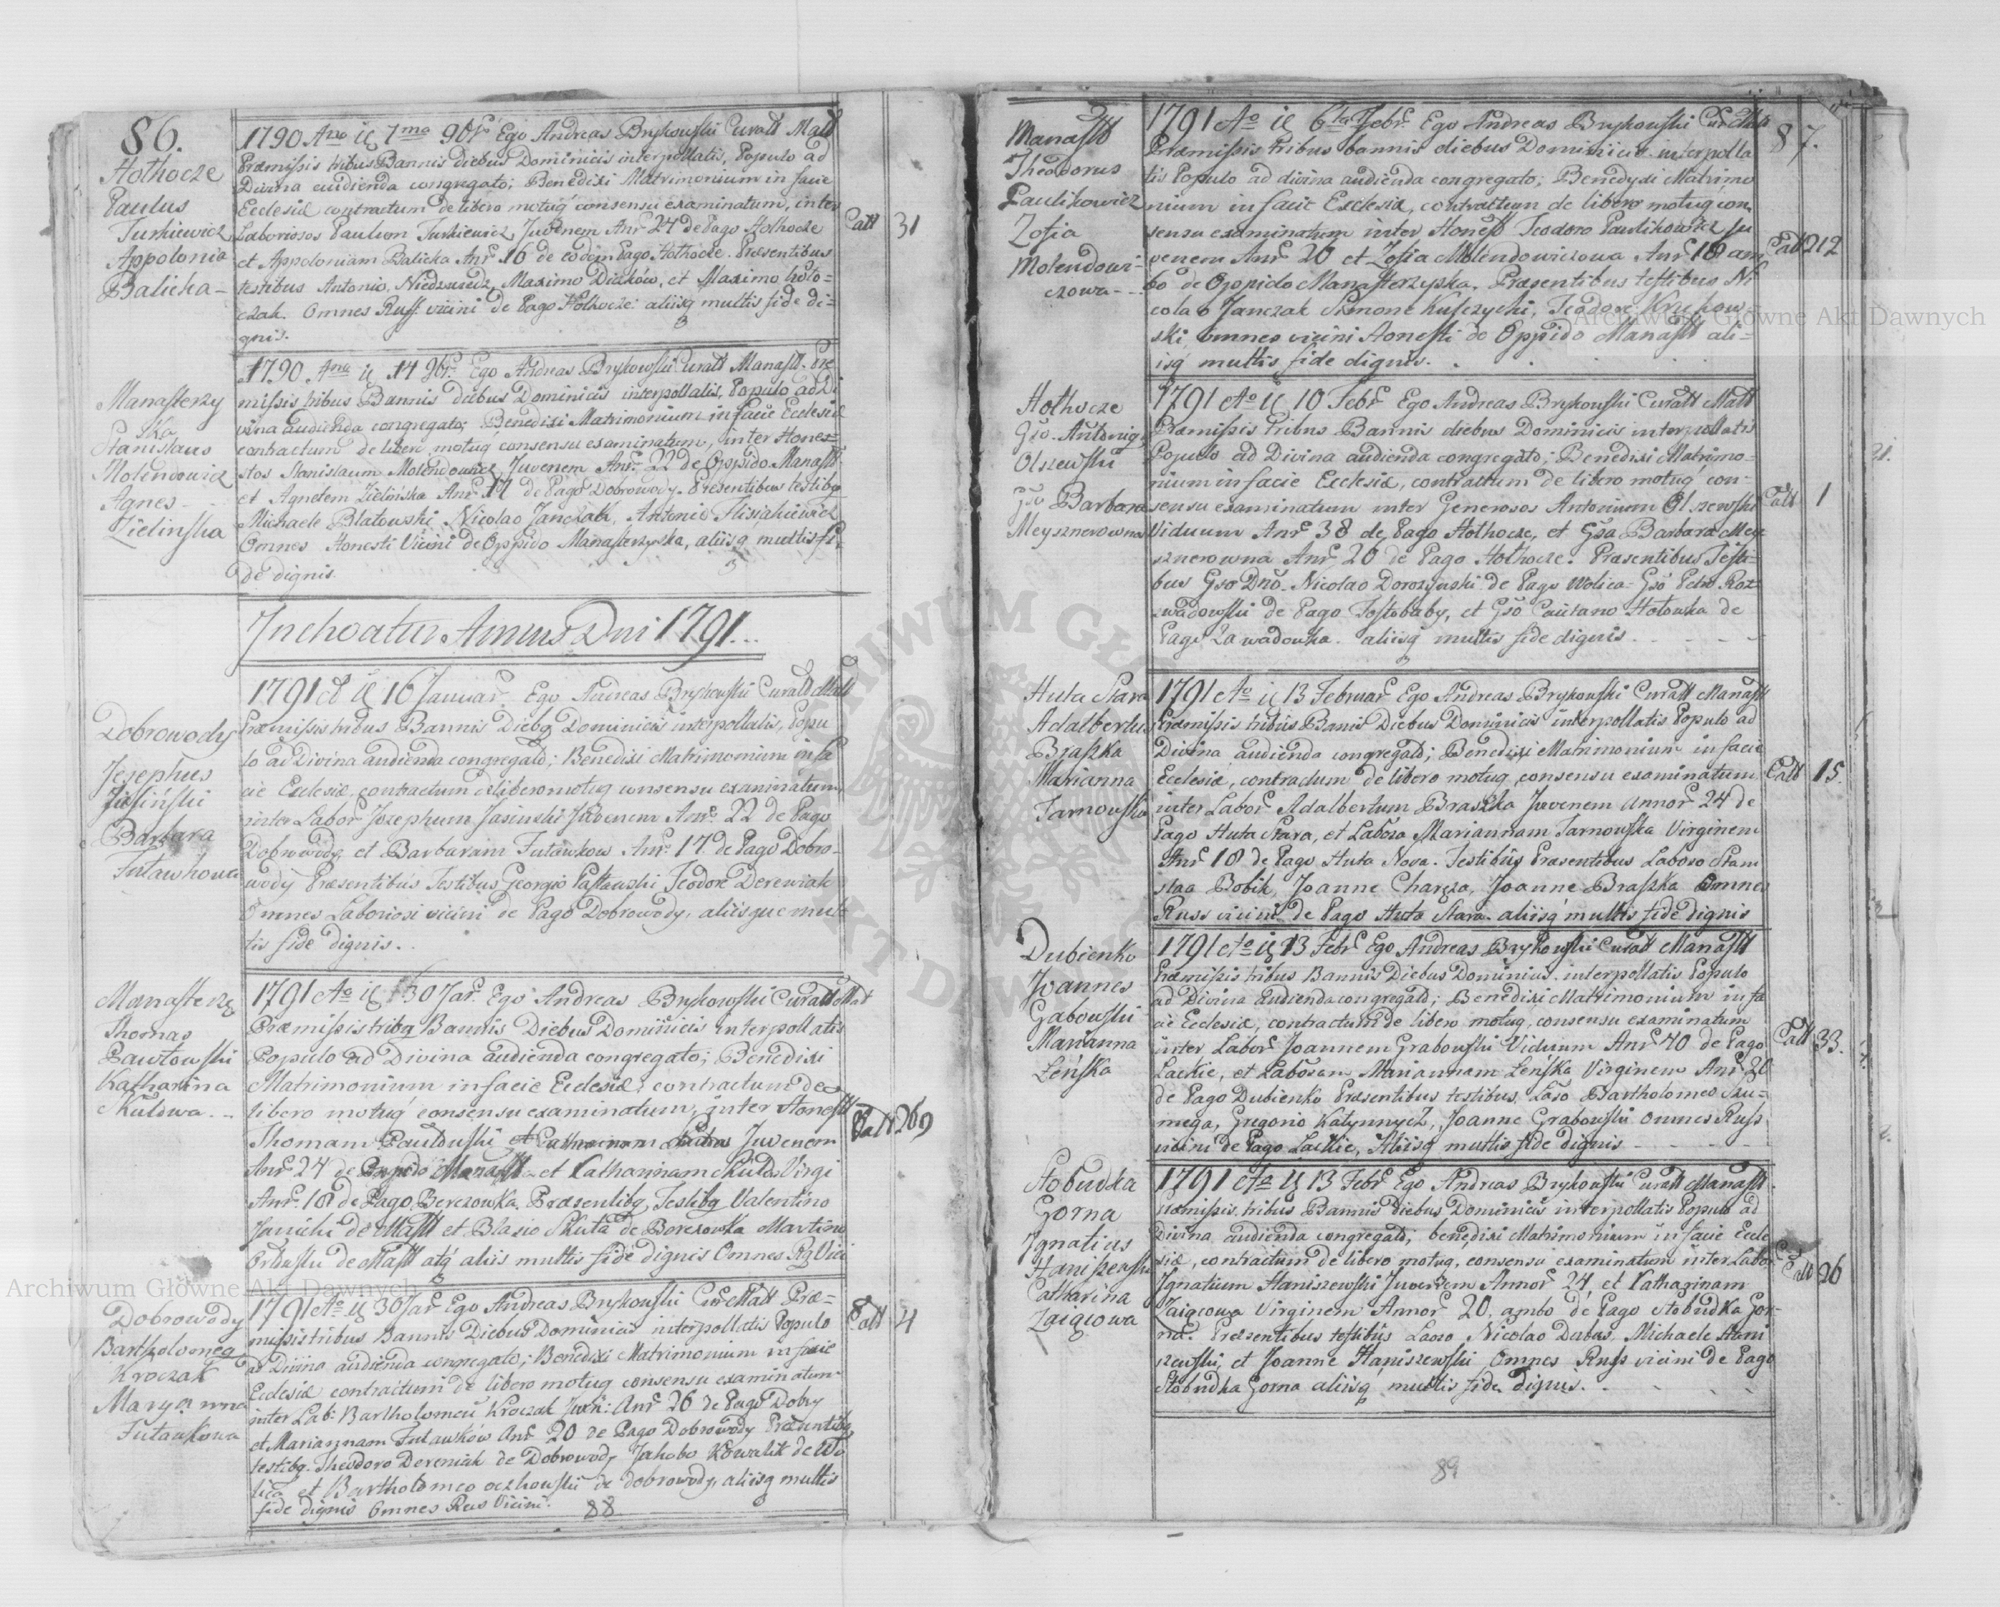 86.
Hothocze
Paulus
Turkiewicz
Appolonia
Balicka
1790 Ano ię 7ma 9br Ego Andreas Brykowski Curatt Matt
Præmissis tribus Bannis diebus Dominicis interpollatis, Populo ad
Divina audienda congregato; Benedixi Matrimonium in facie
Ecclesiæ contractum de libero motuq́ consensu examinatum, inter
Laboriosos Paulum Turkiewicz Juvenem Anr 24 de Pago Hothocze
et Appoloniam Balicka Anr 16 de eodem Pago Hothocze. Præsentibus
testibus Antonio Niedzwiedz, Maximo Diaków, et Maximo
czak. Omnes Russ: vicini de Pago Hothocze aliisq multis fide di-
gnis.
Catt 31
Manasterzy
ska
Stanislaus
Molendowicz
Agnes
Zielinska
1790 Ano ię 14 9br. Ego Andreas Brykowski Curatt Manast. Præ
missis tribus Bannis diebus Dominicis interpollatis, Populo ad Di
vina audienda congregato; Benedixi Matrimonium in facie Ecclesiæ
contractum de libero motuq́ consensu examinatum, inter Hones-
stos Stanislaum Molendowicz Juvenem Anr. 22 de Oppido Manast.
et Agnetem Zielińska Anr 17 de Pago Dobrowody. Præsentibus testibq
Michaele Blatowski, Nicolao Janczak, Antonio
Omnes Honesti Vicini de Oppido Manasterzyska, aliisq multis fi,
de dignis
Inchoatur Annus Dni 1791...
Dobrowody
Josephus
Jasiński
Barbara
Futawkowa
1791 Ao ię 16 Januar. Ego Andreas Brykowski Curatt Matt
Præmissis tribus Bannis Diebq Dominicis interpollatis, Popu
lo ad Divina audienda congregato; Benedixi Matrimonium in fa
cie Ecclesiæ contractum de libero motuq consensu examinatum
inter Labor Josephum Jasinski Juvenem Anr. 22 de Pago
Dobrowody et Barbaram Futawkow Anr. 17 de Pago Dobro-
wody Præsentibus Testibus Georgio Teodore Dereniak
Omnes Laboriosi vicini de Pago Dobrowody, aliisque mul
tis fide dignis..
Manasterz
Thomas
Pawłowski
Katharina
Skuldwa...
1791 Ao ię 30 Jar. Ego Andreas Brykowski Curatt Mat
Præmissis tribq Bannis Diebus Dominicis interpollatis
Populo ad Divina audienda congregato; Benedixi
Matrimonium in facie Ecclesiæ, contractum de
libero motuq́ consensu examinatum, inter Honest
Thomam Pauldwski Juvenem
Anr. 24 de Oppido Manast. et Catharinam Skulda Virgi
Anr. 18 de Pago Berezowka, Præsentibq Testibq Valentino
Janicki de Mastt et Blasio Skuta de Berezowka Martino
de Mastt atq́ aliis multis fide dignis Omnes Rq Vici
Catt 269
Dobrowody
Bartholomeq
Kroczak
Maryanna
Futawkowa
1791 Ao ię 30 Jar Ego Andreas Brykowski Cur Matt Præ-
missis tribus Bannis Diebus Dominicis interpollatis Populo
ad Divina audienda congregato; Benedixi Matrimonium in facie
Ecclesiæ contractum de libero motuq consensu examinatum
inter Lab: Bartholomeū Kroczak Juve: Anr. 26 de Pago Dobry
et Mariannam Futawków Anr 20 de Pago Dobrowody Præsentibq
testibq. Theodoro Dereniak de Dobrowody Jakobo Kowalik de Wo
lica et Bartholomeo oczkowski de dobrowody, aliisq multis
fide dignis Omnes Rus Vicini.
Catt 4
88
Manastt
Theodorus
Paulikowicz
Zofia
Molendowi-
czowa
1791 Ao ię 6ta Febr. Ego Andreas Brykowski Cur Matt
Præmissis tribus bannis diebus Dominicis interpolla
tis Populo ad divina audienda congregato; Benedyxi Matrimo
nium in facie Ecclesiæ, contractum de libero motuq con,
sensu examinatum inter Honest Teodoro Paulikowicz Ju
venem Anr. 20 et Zofia Molendowiczowa Anr. 18 am
bo de Oppido Manasterzyska. Præsentibus testibus Ni
colao Janczak Simone Kulczycki, Teodore
ski omnes vicini Honesti de Oppido Manastt ali-
isq multis fide dignis.
87.
Catt 212
Hothocze
Gso. Antoniq
Olszewski
Gso Barbara
Meysznerowna
1791 Ao ię 10 Febr Ego Andreas Brykowski Curatt Matt
Præmissis tribus Bannis diebus Dominicis interpollatis
Populo ad Divina audienda congregato; Benedixi Matrimo-
nium in facie Ecclesiæ, contractum de libero motuq́ con-
sensu examinatum inter Generosos Antonium Olszewski
Viduum Anr. 38 de Pago Hothocze, et Gsa Barbara Mey
sznerowna Anr. 20 de Pago Hothocze. Præsentibus Testi-
bus Gso Dno. Nicolao Dorozynski de Pago Wolica Gso Petro Roz-
wadowski de Pago Tostobaby, et Gso Caietano Hotowka de
Pago Zawadowka. aliisq multis fide dignis
Catt 1
Huta Stara
Adalbertus
Braszka
Marianna
Tarnowska
1791 Ao ię 13 Februar Ego Andreas Brykowski Curatt Manastt
Præmissis tribus Banis Diebus Dominicis interpollatis Populo ad
Divina audienda congregato; Benedixi Matrimonium in facie
Ecclesiæ, contractum de libero motuq consensu examinatum
inter Labor Adalbertum Braszka Juvenem Annor. 24 de
Pago Huta Stara, et Labora Mariannam Tarnowska Virginem
Anr. 18 de Pago Huta Nova. Testibus Præsentibus Laboso Stani
slaa Bobik, Joanne Joanne Braszka Omnes
Russ vicini de Pago Huta Stara. aliisq́ multis fide dignis
Catt 15.
Dubienko
Joannes
Gabowski
Marianna
Leńska
1791 Ao ię 13 Febr. Ego Andreas Brykowski Curatt Manastt
Præmissis tribus Bannis Diebus Dominicis interpollatis Populo
ad Divina audienda congregato; Benedixi Matrimonium in fa
cie Ecclesiæ, contractum de libero motuq, consensu examinatum
inter Labor. Joannem Grabowski Viduum Anr. 40 de Pago
Lackie, et Laboram Mariannam Leńska Virginem Anr. 20
de Pago Dubienko Præsentibus testibus, Laso Bartholomeo
mega, Gregorio Joanne Grabowski omnes Russ
vicini de Pago Lackie, Aliisq multis fide dignis
Catt 33.
Stobudka
Gorna
Ignatius
Haniszewski
Catharina
Zaigcowa
1791 Ao ię 13 Febr Ego Andreas Brykowski Curatt Manast
ræmissis tribus Bannis diebus Dominicis interpollatis Populo ad
Divina audienda congregato; benedixi Matrimonium in facie Eccle
siæ, contractum de libero motuq, consensu examinatum inter Labor
Ignatium Haniszewski Juvenem Annor. 24 et Katharinam
Zaigcowa Virginem Annor 20. ambo de Pago Stobudka Gor-
na. Præsentibus testibus Laso Nicolao Michaele Hani
szewski, et Joanne Haniszewski Omnes Russ vicini de Pago
Stobudka Gorna aliisq multis fide dignis.
Catt 26
89
Archiwum Główne Akt Dawnych
Archiwum Główne Akt Dawnych
ARCHIWUM GŁÓWNE AKT DAWNYCH